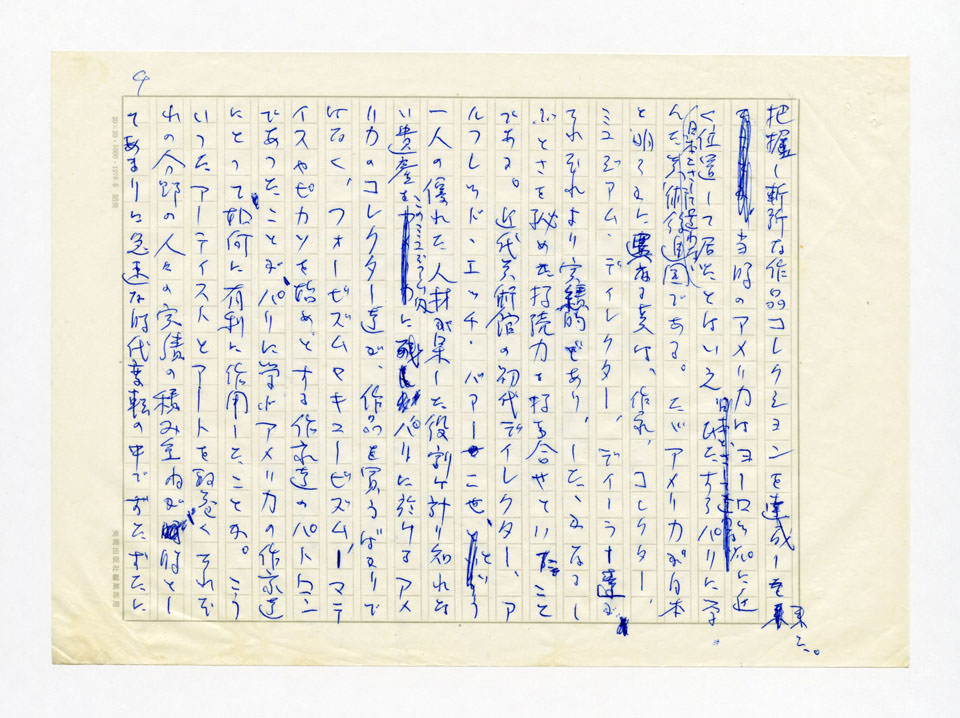 4
把握し斬新な作品コレクションを達成して来た。
当時のアメリカはヨーロッパに近
く位置して居たとはいえ、ひたすらパリに学
んだ美術後進国である。ただアメリカが日本
と明らかに異なる点は、作家、コレクター、
ミュジアム・ディレクター、ディーラー達が
それぞれより実績的であり、したたかなるし
ぶとさを秘めた持続力を持ち合せていたこと
である。近代美術館の初代ディレクター、ア
ルフレッド・エッチ・バアーこせという
一人の優れた人材が果した役割は計り知れな
い遺産をこのミュゼアム内に残し、パリに於けるアメ
リカのコレクター達が、作品を買うばかりで
はなく、フォービズムやキュービズム、マテ
イスやピカソを始めとする作家達のパトロン
であったことが、パリに学ぶアメリカの作家達
にとって、如何に有利に作用したことか。こう
いったアーティストとアートを取巻くそれぞ
れの分野の人々の実績の積み重ねが、時とし
てあまりに急速な時代変転の中でずたずたに
20×20